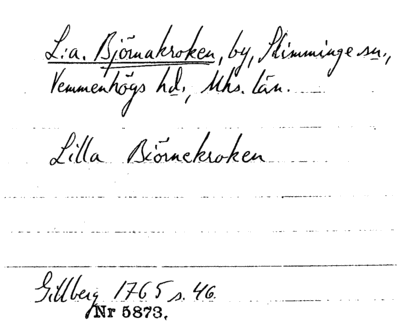 L:a. Björnakroken, by, Slimminge sn.,
Vemmenhögs hd., Mhs. län.
Lilla Biörnekroken
Gillberg 1765 s. 46.
Nr 5873.